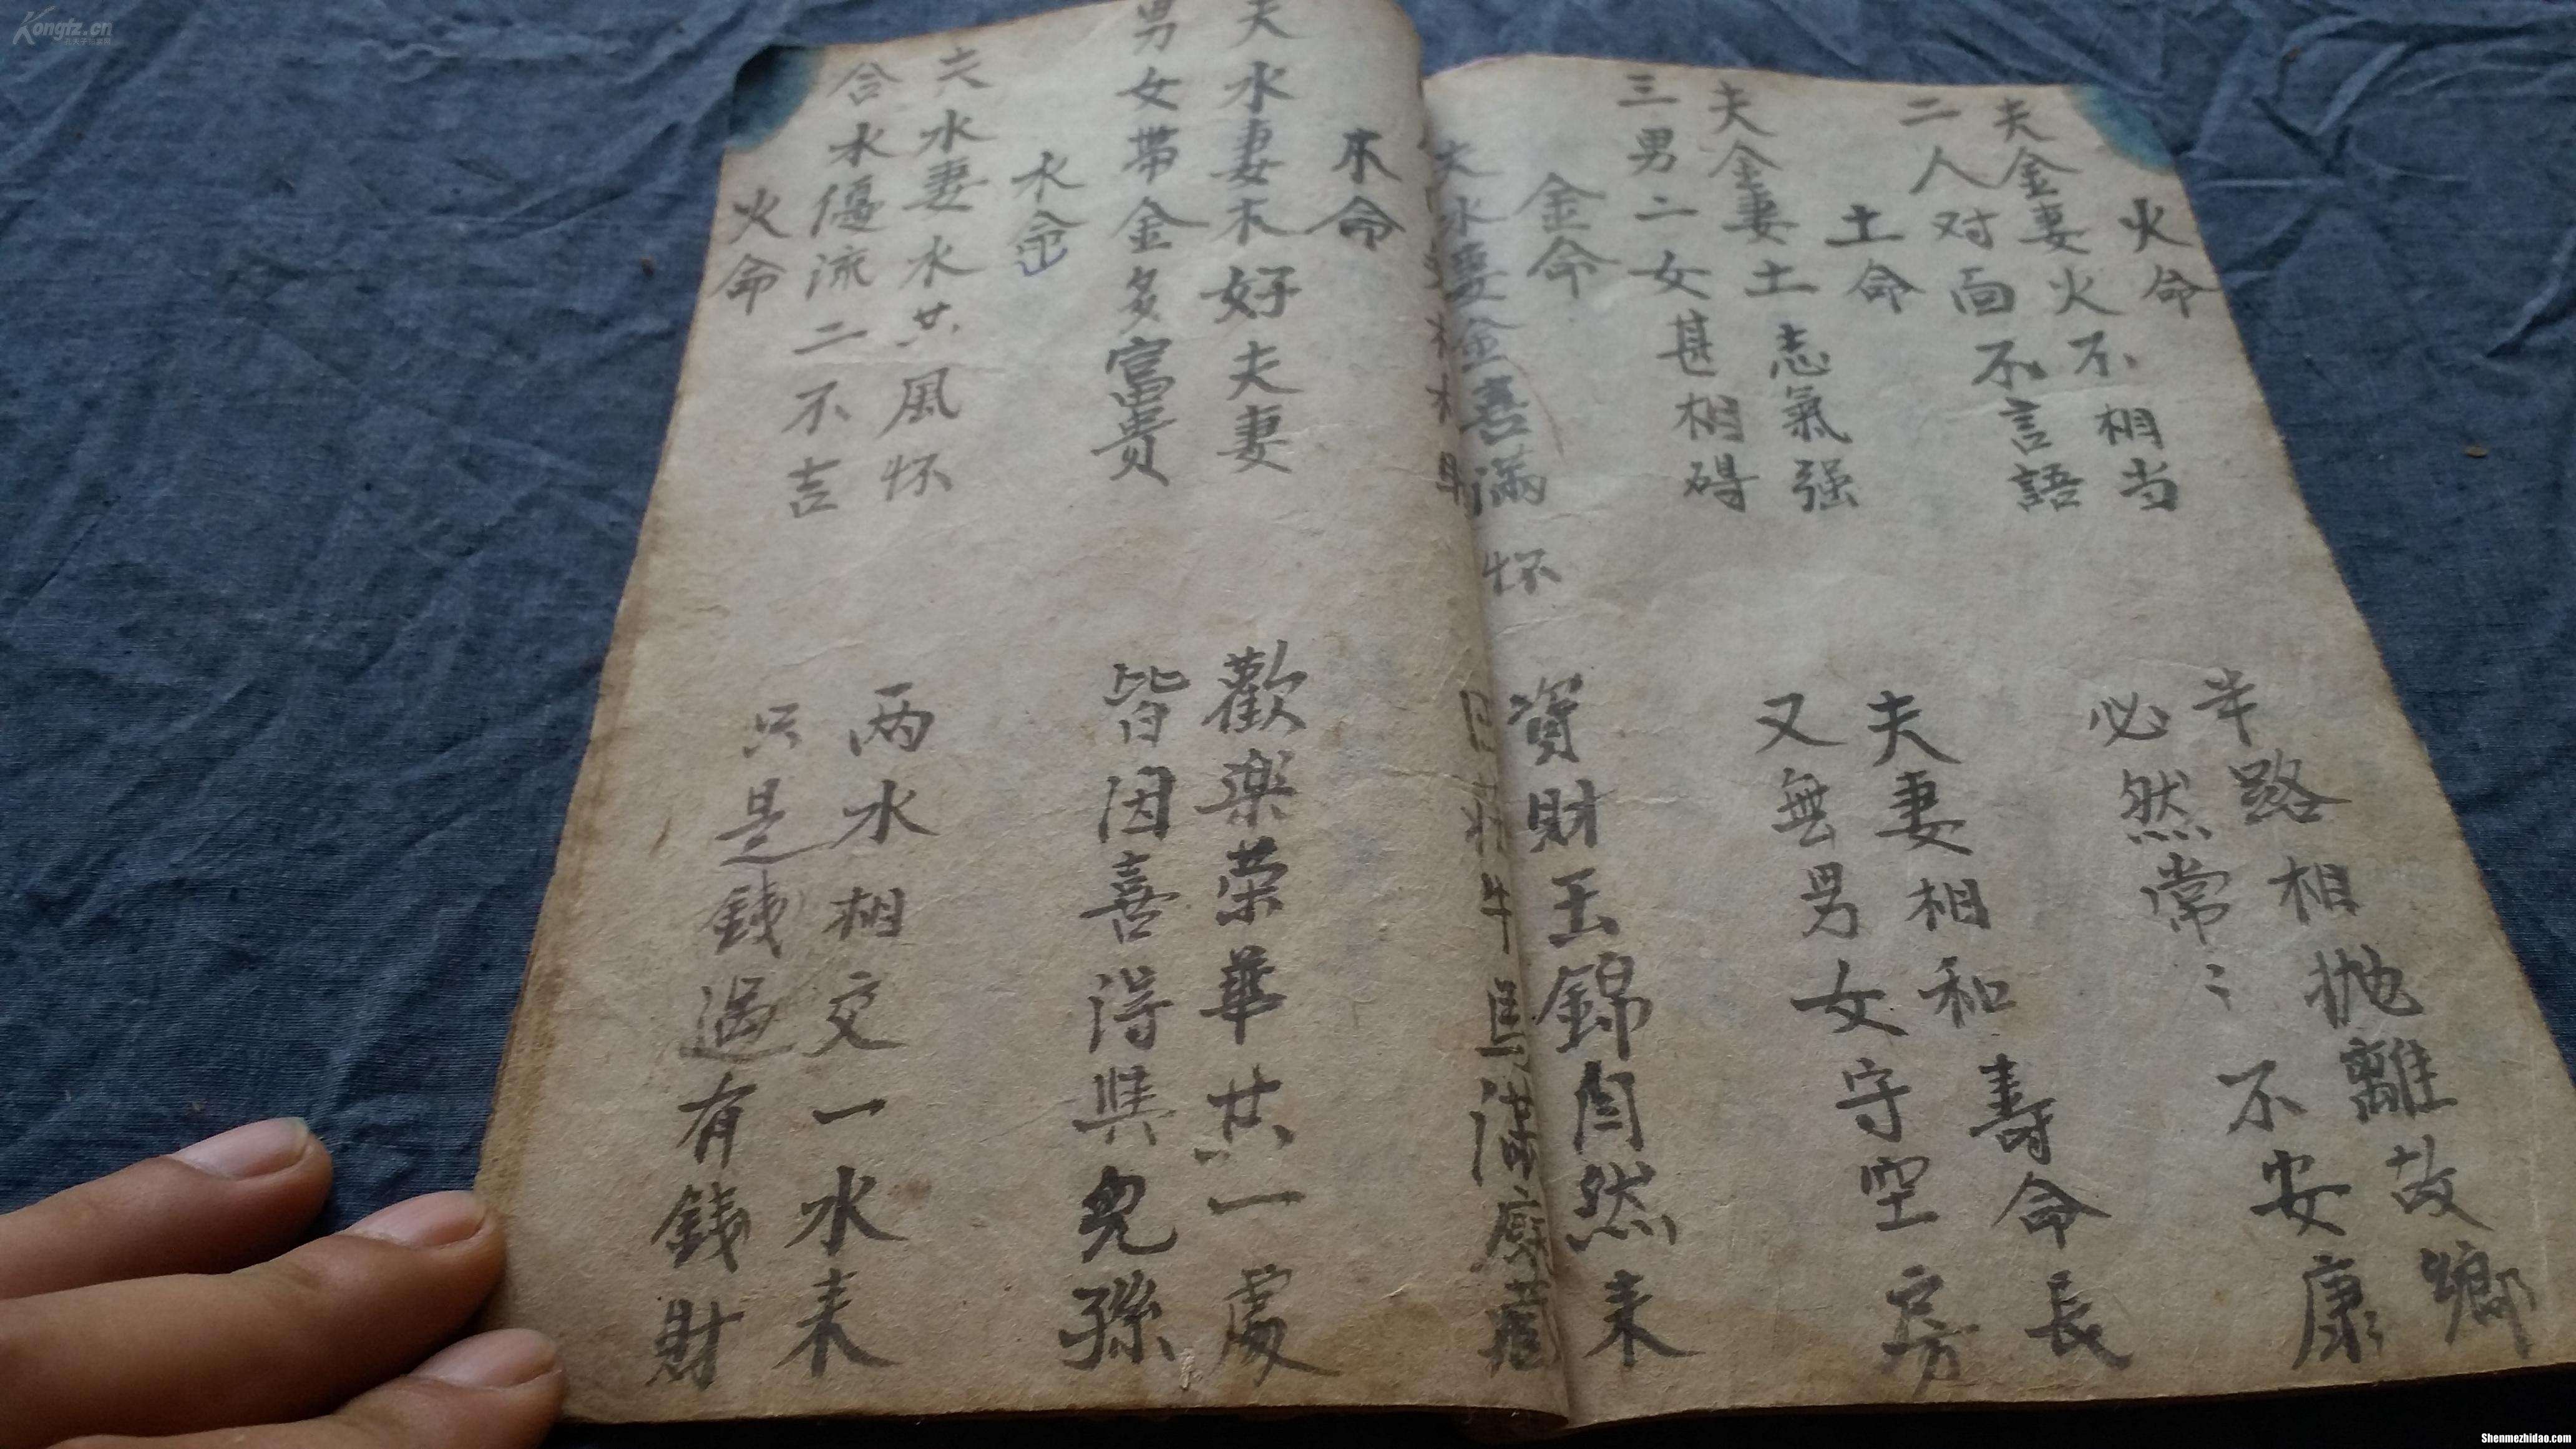 火命
夫金妻火不相当
半路相抛離故鄉
二人对面不言語
必然常〻不安康
土命
夫金妻土志氣强
夫妻相和壽命長
三男二女甚相碍
又無男女守空房
金命
夫水妻金喜满怀
資財玉錦自然来
牛馬
木命
夫水妻木好夫妻
歡楽荣華共一處
男女带金多富贵
皆因喜得與兒孫
水命
夫水妻水共風怀
两水相交一水来
合水優流二不吉
只是錢過有錢財
火命
Kongfz.cn
Shenmezhidao.com